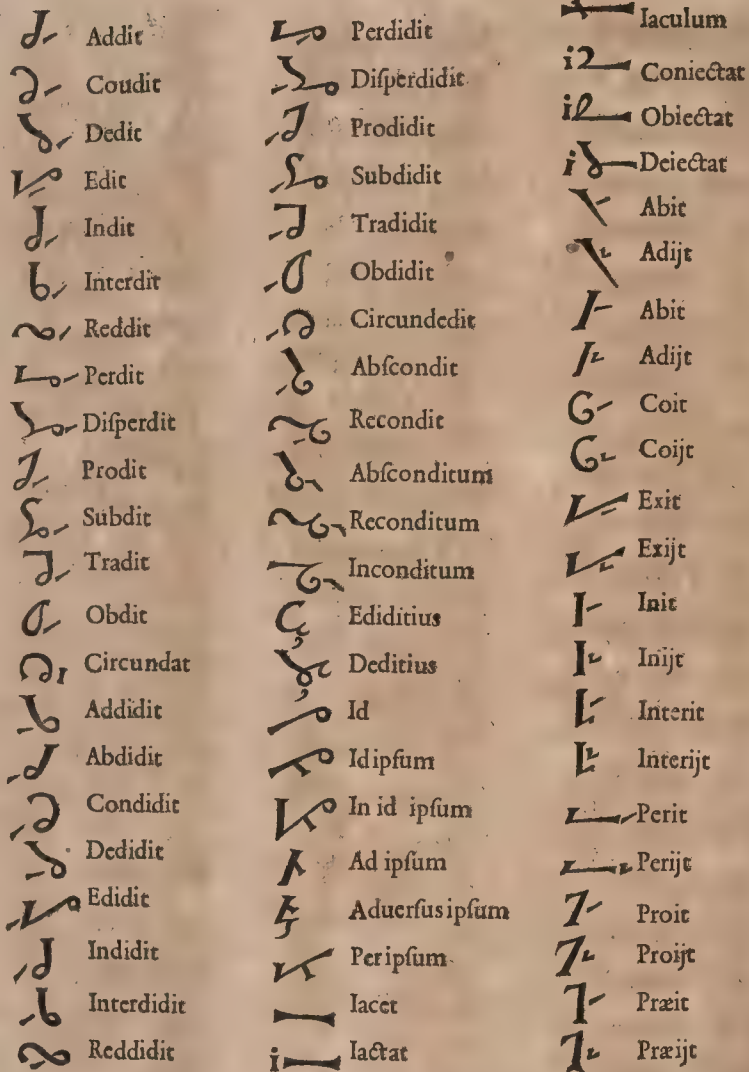 Addit
Coudit
Dedit
Edit
Indit
Interdit
Reddit
Perdit
Diſperdit
Prodit
Subdit
Tradit
Obdit
Circundat
Addidit
Abdidit
Condidit
Dedidit
Edidit
Indidit
Interdidit
Reddidit
Perdidit
Diſperdidit
Prodidit
Subdidit
Tradidit
Obdidit
Circundedit
Abſcondit
Recondit
Abſconditum
Reconditum
Inconditum
Ediditius
Deditius
Id
Id ipſum
In id ipſum
Ad ipſum
Aduerſus ipſum
Per ipſum
Iacet
Iactat
Iaculum
Coniectat
Obiectat
Deiectat
Abit
Adijt
Abit
Adijt
Coit
Coijt
Exit
Exijt
Init
Inijt
Interit
Interijt
Perit
Perijt
Proit
Proijt
Præit
Præijt